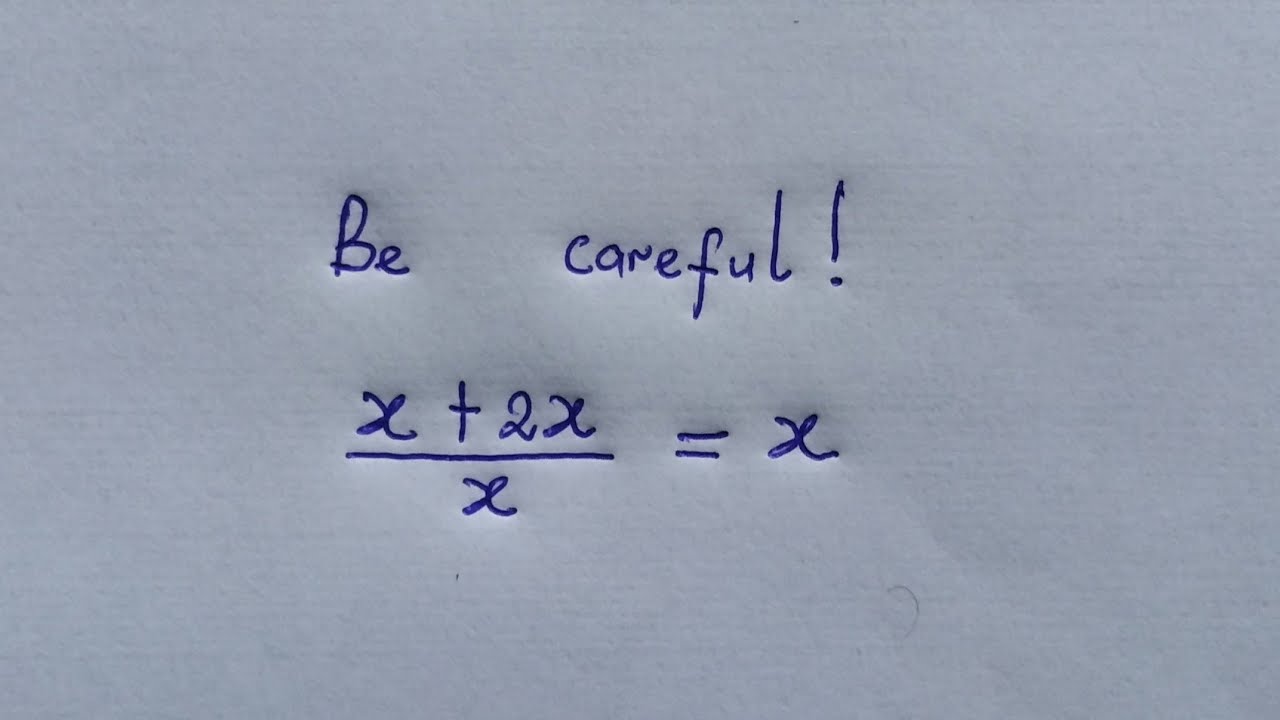 Be careful!
x + 2x
x
= x